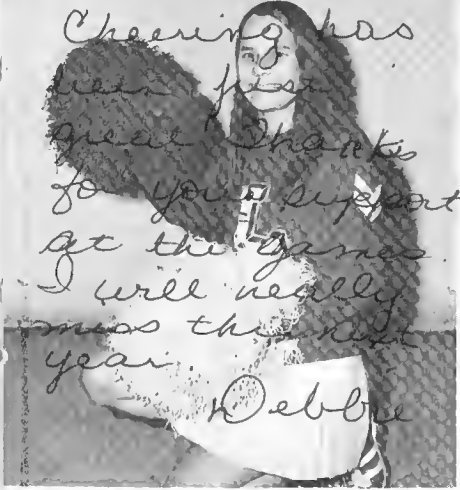 Cheering has
been just
great Thanks
for your support
at the games.
I will really
miss this next
year.
Debbie
L